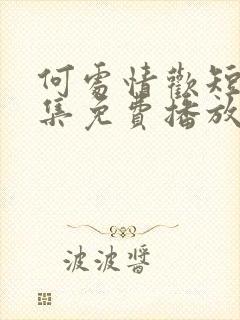 何處情歡短
集免費播放
波波醬